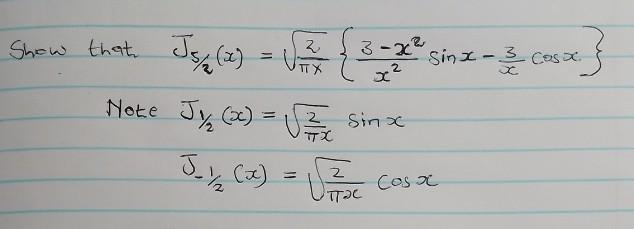 Show that J₅/₂(x) = √(2/πx) { (3 − x²)/x² sin x − 3/x cos x }
Note J₁/₂(x) = √(2/πx) sin x
J₋₁/₂(x) = √(2/πx) cos x